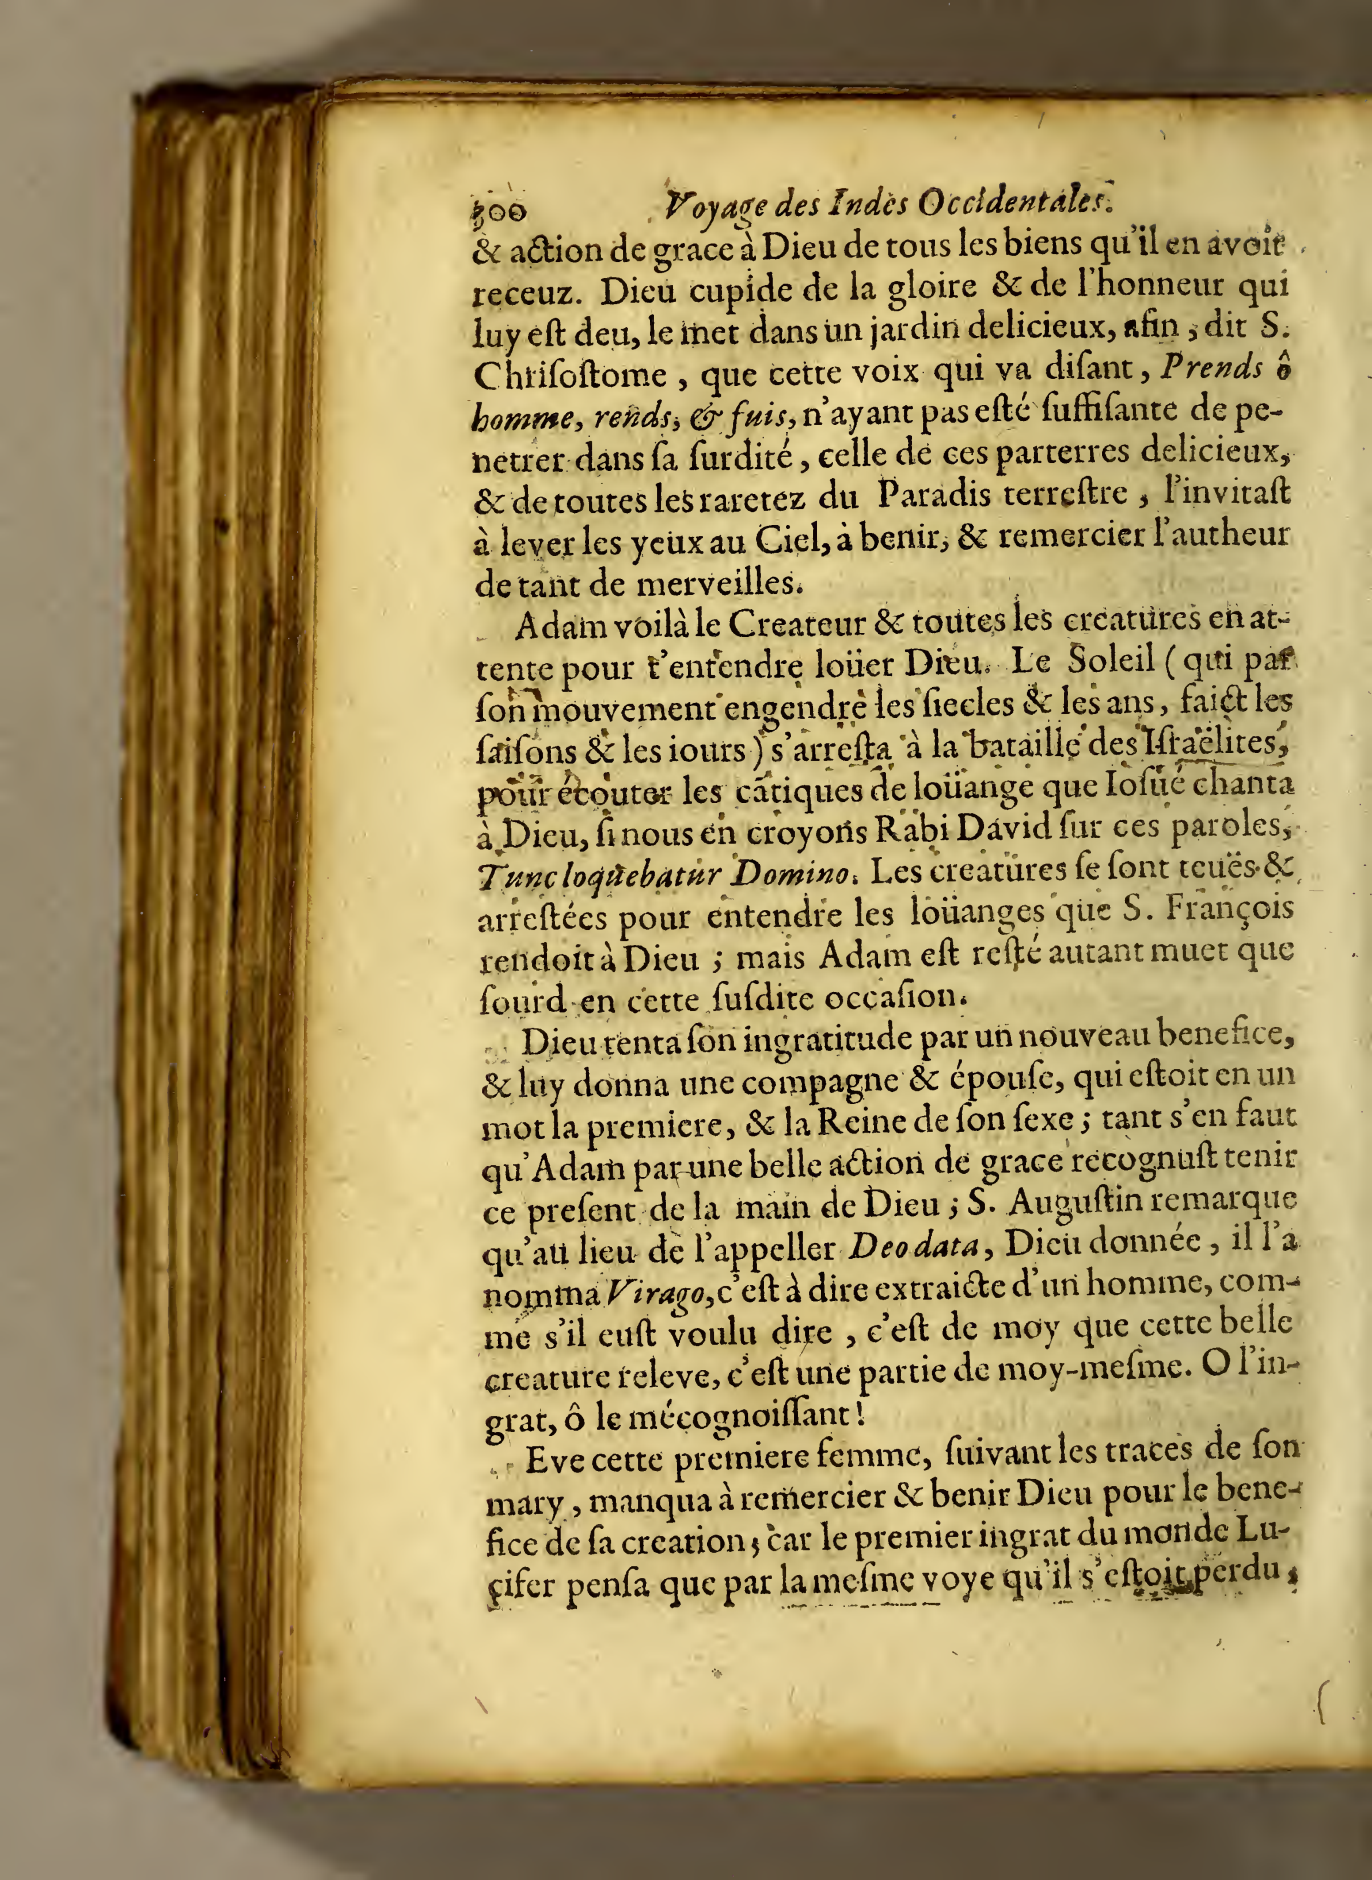 300 Voyage des Indes Occidentales.
& action de grace à Dieu de tous les biens qu'il en avoit
receuz. Dieu cupide de la gloire & de l'honneur qui
luy eſt deu, le met dans un jardin delicieux, afin, dit S.
Chriſoſtome, que cette voix qui va diſant, Prends ô
homme, rends, & fuis, n'ayant pas eſté ſuffiſante de pe-
netrer dans ſa ſurdité, celle de ces parterres delicieux,
& de toutes les raretez du Paradis terreſtre, l'invitaſt
à lever les yeux au Ciel, à benir, & remercier l'autheur
de tant de merveilles.
Adam voilà le Createur & toutes les creatures en at-
tente pour t'entendre loüer Dieu. Le Soleil (qui par
ſon mouvement engendre les ſiecles & les ans, faict les
ſaiſons & les iours) s'arreſta à la bataille des Iſraëlites,
pour écouter les cãtiques de loüange que Ioſué chanta
à Dieu, ſi nous en croyons Rabi David ſur ces paroles,
Tunc loquebatur Domino. Les creatures ſe ſont teuës &
arreſtées pour entendre les loüanges que S. François
rendoit à Dieu; mais Adam eſt reſté autant muet que
ſourd en cette ſuſdite occaſion.
Dieu tenta ſon ingratitude par un nouveau benefice,
& luy donna une compagne & épouſe, qui eſtoit en un
mot la premiere, & la Reine de ſon ſexe; tant s'en faut
qu'Adam par une belle action de grace recognuſt tenir
ce preſent de la main de Dieu; S. Auguſtin remarque
qu'au lieu de l'appeller Deodata, Dieu donnée, il l'a
nomma Virago, c'eſt à dire extraicte d'un homme, com-
me s'il euſt voulu dire, c'eſt de moy que cette belle
creature releve, c'eſt une partie de moy-meſme. O l'in-
grat, ô le mécognoiſſant!
Eve cette premiere femme, ſuivant les traces de ſon
mary, manqua à remercier & benir Dieu pour le bene-
fice de ſa creation; car le premier ingrat du monde Lu-
çifer penſa que par la meſme voye qu'il s'eſtoit perdu,